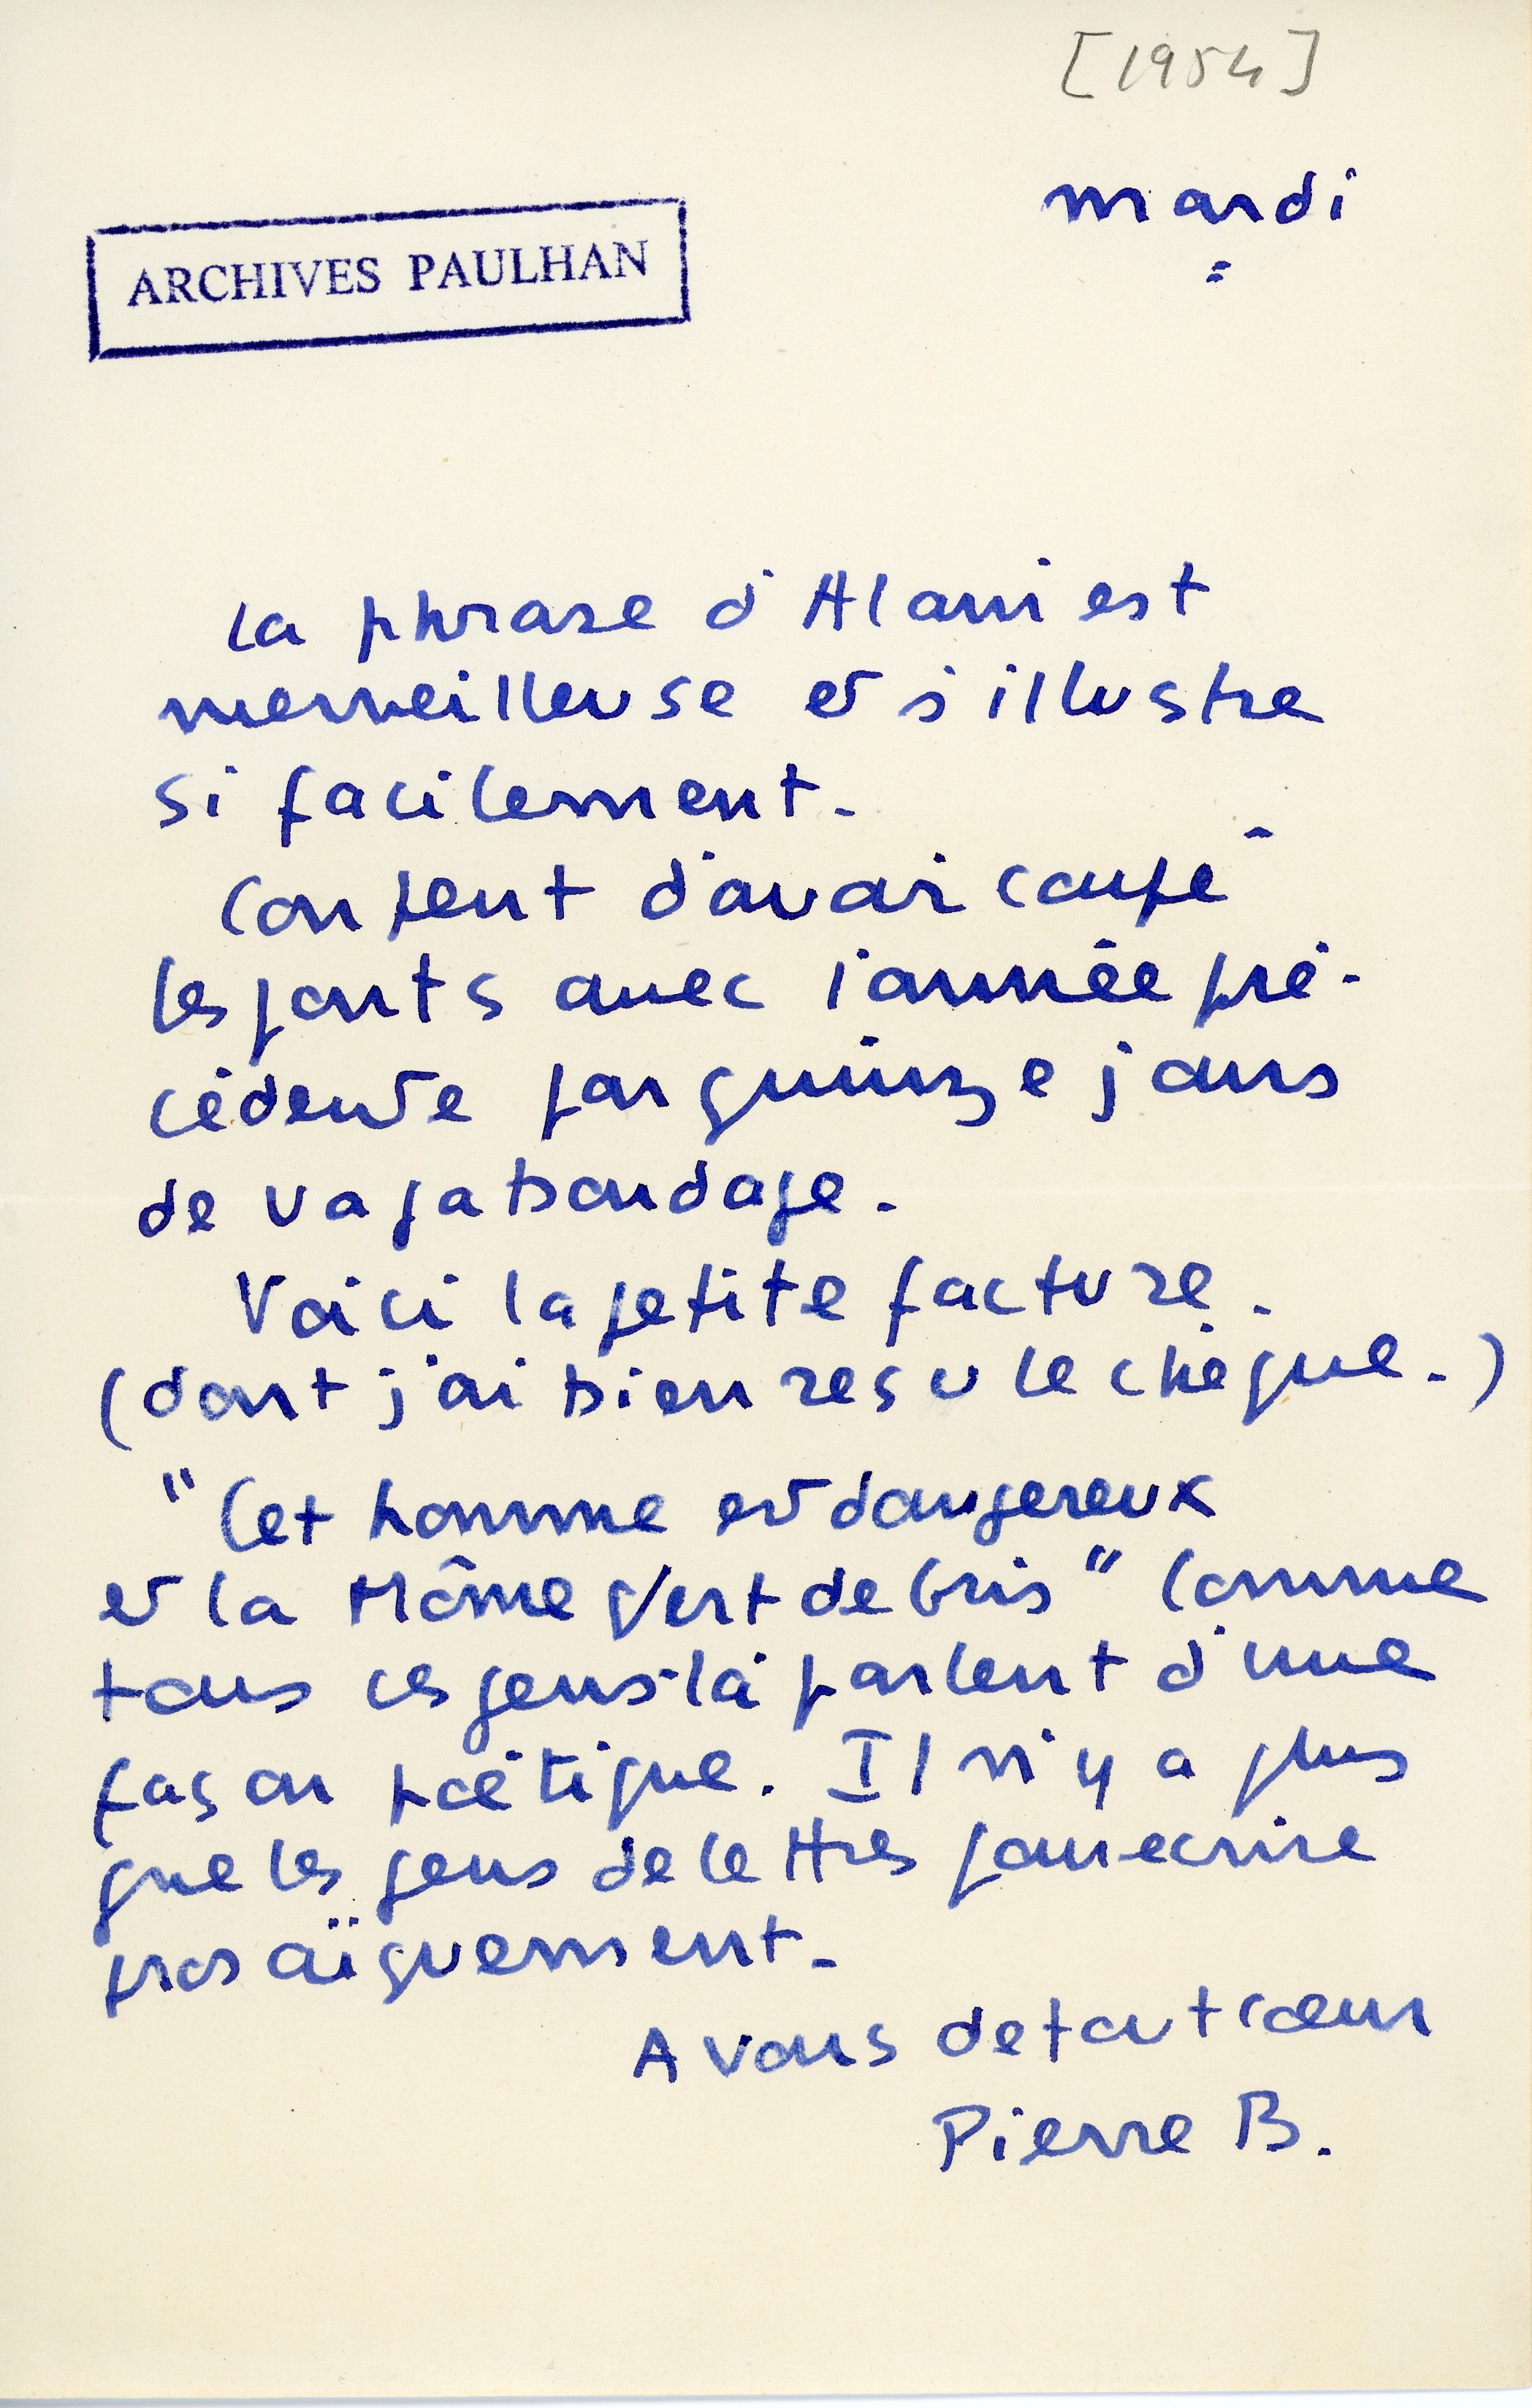 [1954]
mardi
ARCHIVES PAULHAN
la phrase d'Alain est
merveilleuse et s'illustre
si facilement.
Content d'avoir coupé
les ponts avec l'année pré-
cédente par quinze jours
de vagabondage.
Voici la petite facture.
(dont j'ai bien reçu le chèque.)
"Cet homme est dangereux
et la Môme Vert de Gris" Comme
tous ces gens-là parlent d'une
façon poètique. Il n'y a plus
que les gens de lettres pour ecrire
prosaïquement.
A vous de tout cœur
Pierre B.